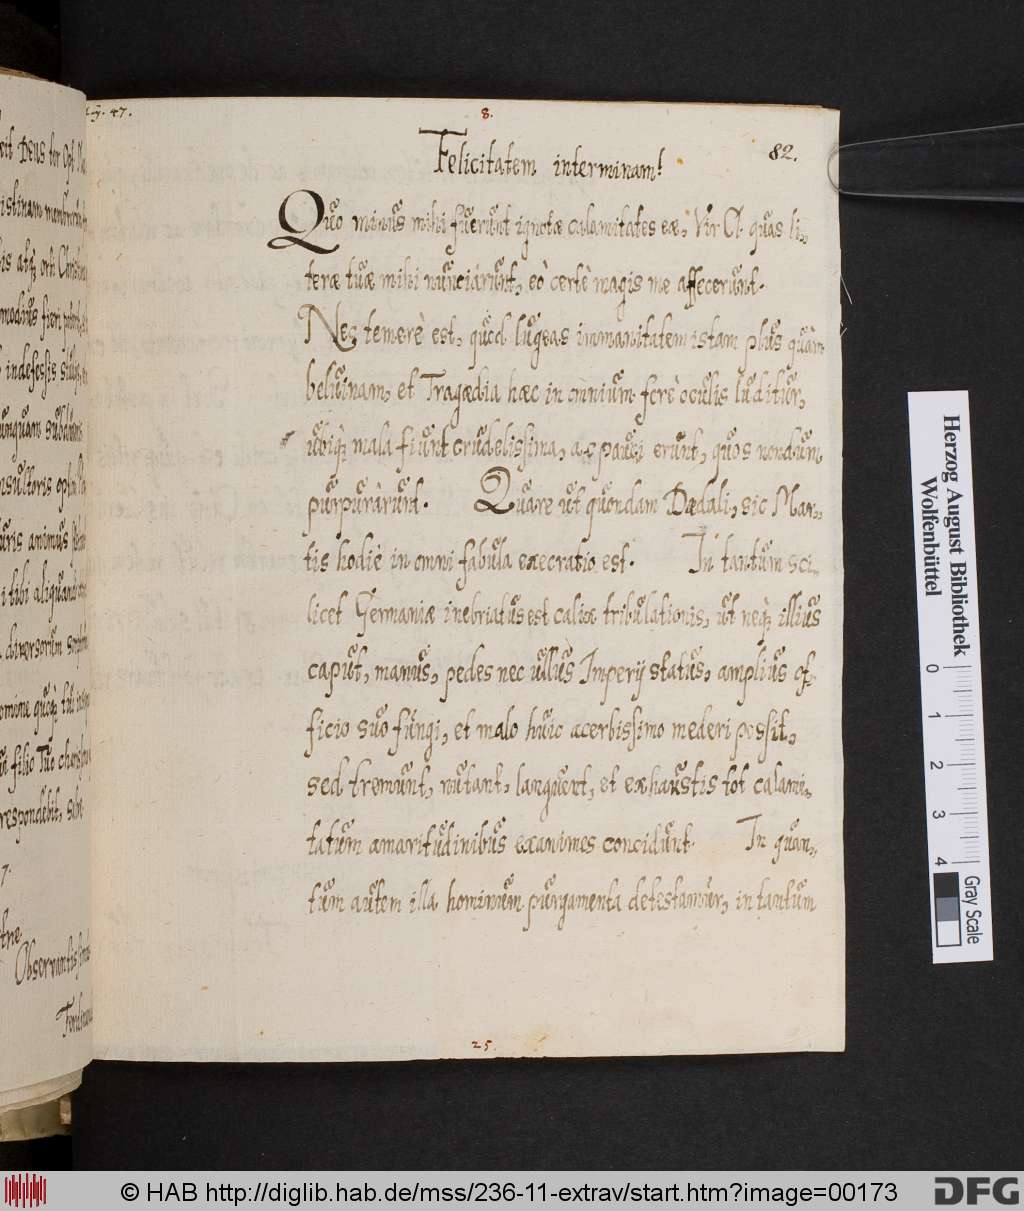 47.
8.
82.
Felicitatem interminam!
Quo minus mihi fuerunt ignotæ calamitates eæ, Vir Cl. quas li,,
teræ tuæ mihi nunciârunt, eò certè magis me affecerunt.
Nec temerè est, quod lugeas immanitatem istam plus quàm
beluinam, et Tragædia hæc in omnium ferè oculis luditur,
ubiq; mala fiunt crudelissima, ac pauci erunt, quos nondum
purpurârunt. Quare ut quondam Dædali, sic Mar,,
tis hodiè in omni fabula execratio est. In tantum sci,,
licet Germaniæ inebriatus est calix tribulationis, ut neq; illius
caput, manus, pedes nec ullus Imperij status, amplius of,,
ficio suo fungi, et malo huic acerbissimo mederi possit,
sed tremunt, nutant, languent, et exhaustis tot calami,,
tatum amaritudinibus exanimes concidunt. In quan,,
tum autem illa hominum purgamenta detestamur, in tantum
25.
vit DEUS ter Opt.
istinam
modius fieri
indefessis
unquam
nsultoris
uris animus
i tibi aliquando
diversorum
omine quoq; tui
filio Tuo
respondebit,
7.
Observantissim
Ferdinand
Herzog August Bibliothek
Wolfenbüttel
0 1 2 3 4
Gray Scale
© HAB http://diglib.hab.de/mss/236-11-extrav/start.htm?image=00173
DFG